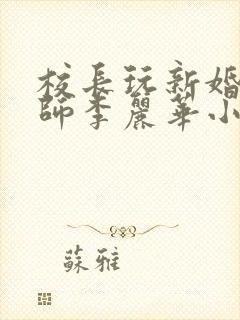 校長玩新婚
師李麗華小
蘇雅